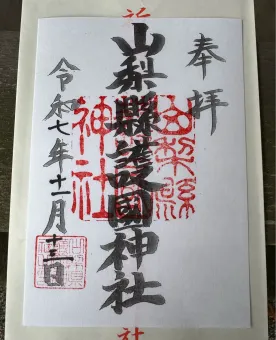 奉拝
山梨縣護國神社
令和七年十一月十三日
山梨縣
神社
社